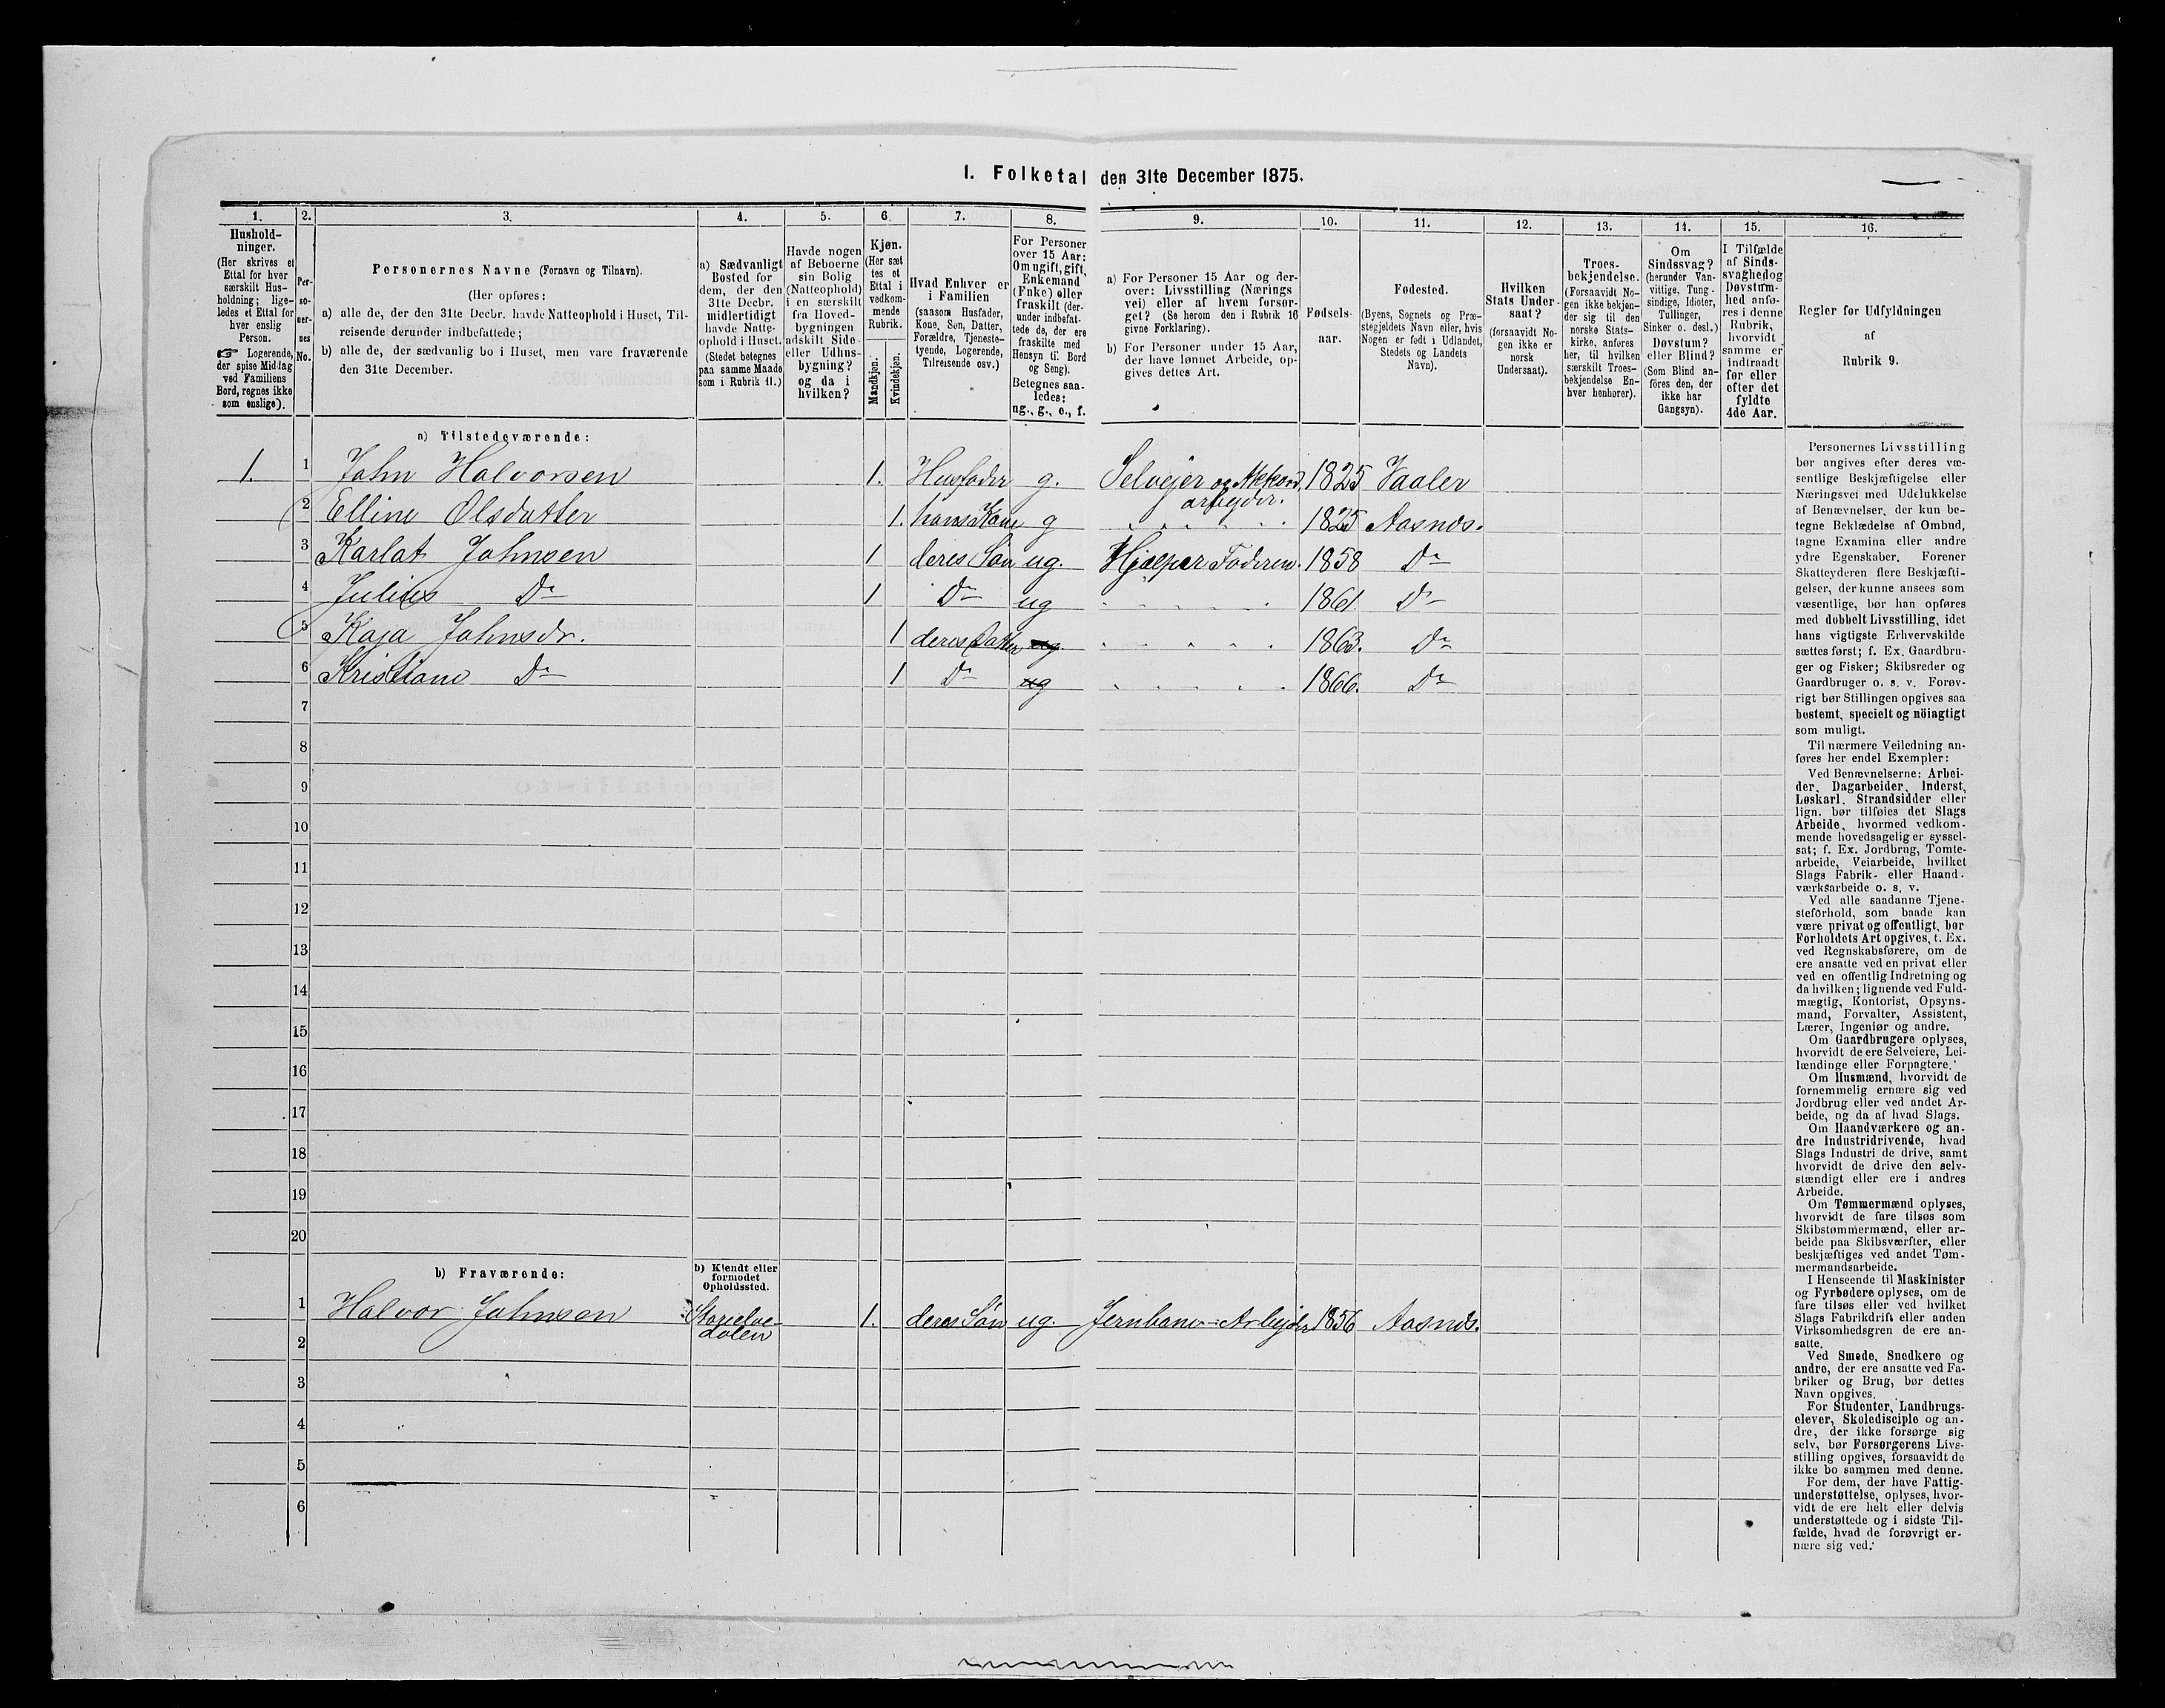 1. Folketal den 31te December 1875.
1. 2. 3. 4. 5. 6. 7. 8. 9. 10. 11. 12. 13. 14. 15. 16.
Hushold-
ninger.
(Her skrives et
Ettal for hver
særskilt Hus-
holdning; lige-
ledes et Ettal for
hver enslig
Person.
☞ Logerende,
der spise Middag
ved Familiens
Bord, regnes ikke
som enslige).
Per-
so-
ner-
nes
No.
Personernes Navne (Fornavn og Tilnavn).
(Her opføres:
a) alle de, der den 31te Decbr. havde Natteophold i Huset, Til-
reisende derunder indbefattede;
b) alle de, der sædvanlig bo i Huset, men vare fraværende
den 31te December.
a) Sædvanligt
Bosted for
dem, der den
31te Decbr.
midlertidigt
havde Natte-
ophold i Huset.
(Stedet betegnes
paa samme Maade
som i Rubrik 11.)
Havde nogen
af Beboerne
sin Bolig
(Natteophold)
i en særskilt
fra Hoved-
bygningen
adskilt Side-
eller Udhus-
bygning?
og da i
hvilken?
Kjøn.
(Her sæt
tes et
Ettal i
vedkom-
mende
Rubrik.
Mandkjøn.
Kvindekjøn.
Hvad Enhver er
i Familien
(saasom Husfader,
Kone, Søn, Datter,
Forældre, Tjeneste-
tyende, Logerende,
Tilreisende osv.)
For Personer
over 15 Aar:
Om ugift, gift,
Enkemand
(Enke) eller
fraskilt (der-
under indbefat-
tede de, der ere
fraskilte med
Hensyn til Bord
og Seng).
Betegnes saa-
ledes:
ug., g., e., f.
a) For Personer 15 Aar og der-
over: Livsstilling (Nærings
vei) eller af hvem forsør-
get? (Se herom den i Rubrik 16
givne Forklaring).
b) For Personer under 15 Aar,
der have lønnet Arbeide, op-
gives dettes Art.
Fødsels-
aar.
Fødested.
(Byens, Sognets og Præ-
stegjeldets Navn eller, hvis
Nogen er født i Udlandet,
Stedets og Landets
Navn).
Hvilken
Stats Under-
saat?
(forsaavidt No-
gen ikke er
norsk
Undersaat).
Troes-
bekjendelse.
(Forsaavidt No-
gen ikke bekjen-
der sig til den
norske Stats-
kirke, anføres
her, til hvilken
særskilt Troes-
bekjendelse En-
hver henhører).
Om
Sindssvag?
(herunder Van-
vittige, Tung-
sindige, Idioter,
Tullinger,
Sinker o. desl.)
Døvstum?
eller Blind?
(Som Blind an-
føres den, der
ikke har
Gangsyn).
I Tilfælde
af Sinds-
svaghed og
Døvstum-
hed anfø-
res i denne
Rubrik,
hvorvidt
samme er
indtraadt
før eller
efter det
fyldte
4de Aar.
Regler for Udfyldningen
af
Rubrik 9.
a) Tilstedeværende:
1. 1 John Halvorsen 1. Husfader g. Selvejer og Akkord. 1825 Vaaler
arbejder.
2 Elline Olsdatter 1. hans Kone g 1825 Aasnes.
3 Karlat Johnsen 1 deres Søn ug. Hjælper Faderen. 1858 Do
4 Julius Do 1 Do ug 1861. Do
5 Kaja Johnsdr. 1 deres Datter ug. 1863. Do
6 Kristiane Do 1 Do ug 1866. Do
7
8
9
10
11
12
13
14
15
16
17
18
19
20
b) Fraværende:
b) Kjendt eller
formodet
Opholdssted.
1 Halvor Johnsen Storelve- 1. deres Søn ug. Jernbane-Arbejder 1856 Aasnes.
dalen
2
3
4
5
6
Personernes Livsstilling
bør angives efter deres væ-
sentlige Beskjæftigelse eller
Næringsvei med Udelukkelse
af Benævnelser, der kun be-
tegne Beklædelse af Ombud,
tagne Examina eller andre
ydre Egenskaber. Forener
Skatteyderen flere Beskjæfti-
gelser, der kunne ansees som
væsentlige, bør han opføres
med dobbelt Livsstilling, idet
hans vigtigste Erhvervskilde
sættes først; f. Ex. Gaardbru-
ger og Fisker; Skibsreder og
Gaardbruger o. s. v. Forøv-
rigt bør Stillingen opgives saa
bestemt, specielt og nöiagtigt
som muligt.
Til nærmere Veiledning an-
føres her endel Exempler:
Ved Benævnelserne: Arbei-
der, Dagarbeider, Inderst,
Løskarl, Strandsidder eller
lign. bør tilføies det Slags
Arbeide, hvormed vedkom-
mende hovedsagelig er syssel-
sat; f. Ex. Jordbrug, Tomte-
arbeide, Veiarbeide, hvilket
Slags Fabrik- eller Haand-
værksarbeide o. s. v.
Ved alle saadanne Tjene-
steforhold, som baade kan
være privat og offentligt, bør
Forholdets Art opgives, t. Ex.
ved Regnskabsførere, om de
ere ansatte ved en privat eller
ved en offentlig Indretning og
da hvilken; lignende ved Fuld-
mægtig, Kontorist, Opsyns-
mand, Forvalter, Assistent,
Lærer, Ingeniør og andre.
Om Gaardbrugere oplyses,
hvorvidt de ere Selveiere, Lei-
lændinge eller Forpagtere.
Om Husmænd, hvorvidt de
fornemmelig ernære sig ved
Jordbrug eller ved andet Ar-
beide, og da af hvad Slags.
Om Haandværkere og an-
dre Industridrivende, hvad
Slags Industri de drive, samt
hvorvidt de drive den selv-
stændigt eller ere i andres
Arbeide.
Om Tømmermænd oplyses,
hvorvidt de fare tilsøs som
Skibstømmermænd, eller ar-
beide paa Skibsværfter, eller
beskjæftiges ved andet Tøm-
mermandsarbeide.
I Henseende til Maskinister
og Fyrbødere oplyses, om de
fare tilsøs eller ved hvilket
Slags Fabrikdrift eller anden
Virksomhedsgren de ere an-
satte.
Ved Smede, Snedkere og
andre, der ere ansatte ved Fa-
briker og Brug, bør dettes
Navn opgives.
For Studenter, Landbrugs-
elever, Skoledisciple og an-
dre, der ikke forsørge sig
selv, bør Forsørgerens Livs-
stilling opgives, forsaavidt de
ikke bo sammen med denne.
For dem, der have Fattig-
understøttelse, oplyses, hvor-
vidt de ere helt eller delvis
understøttede og i sidste Til-
fælde, hvad de forøvrigt er-
nære sig ved.